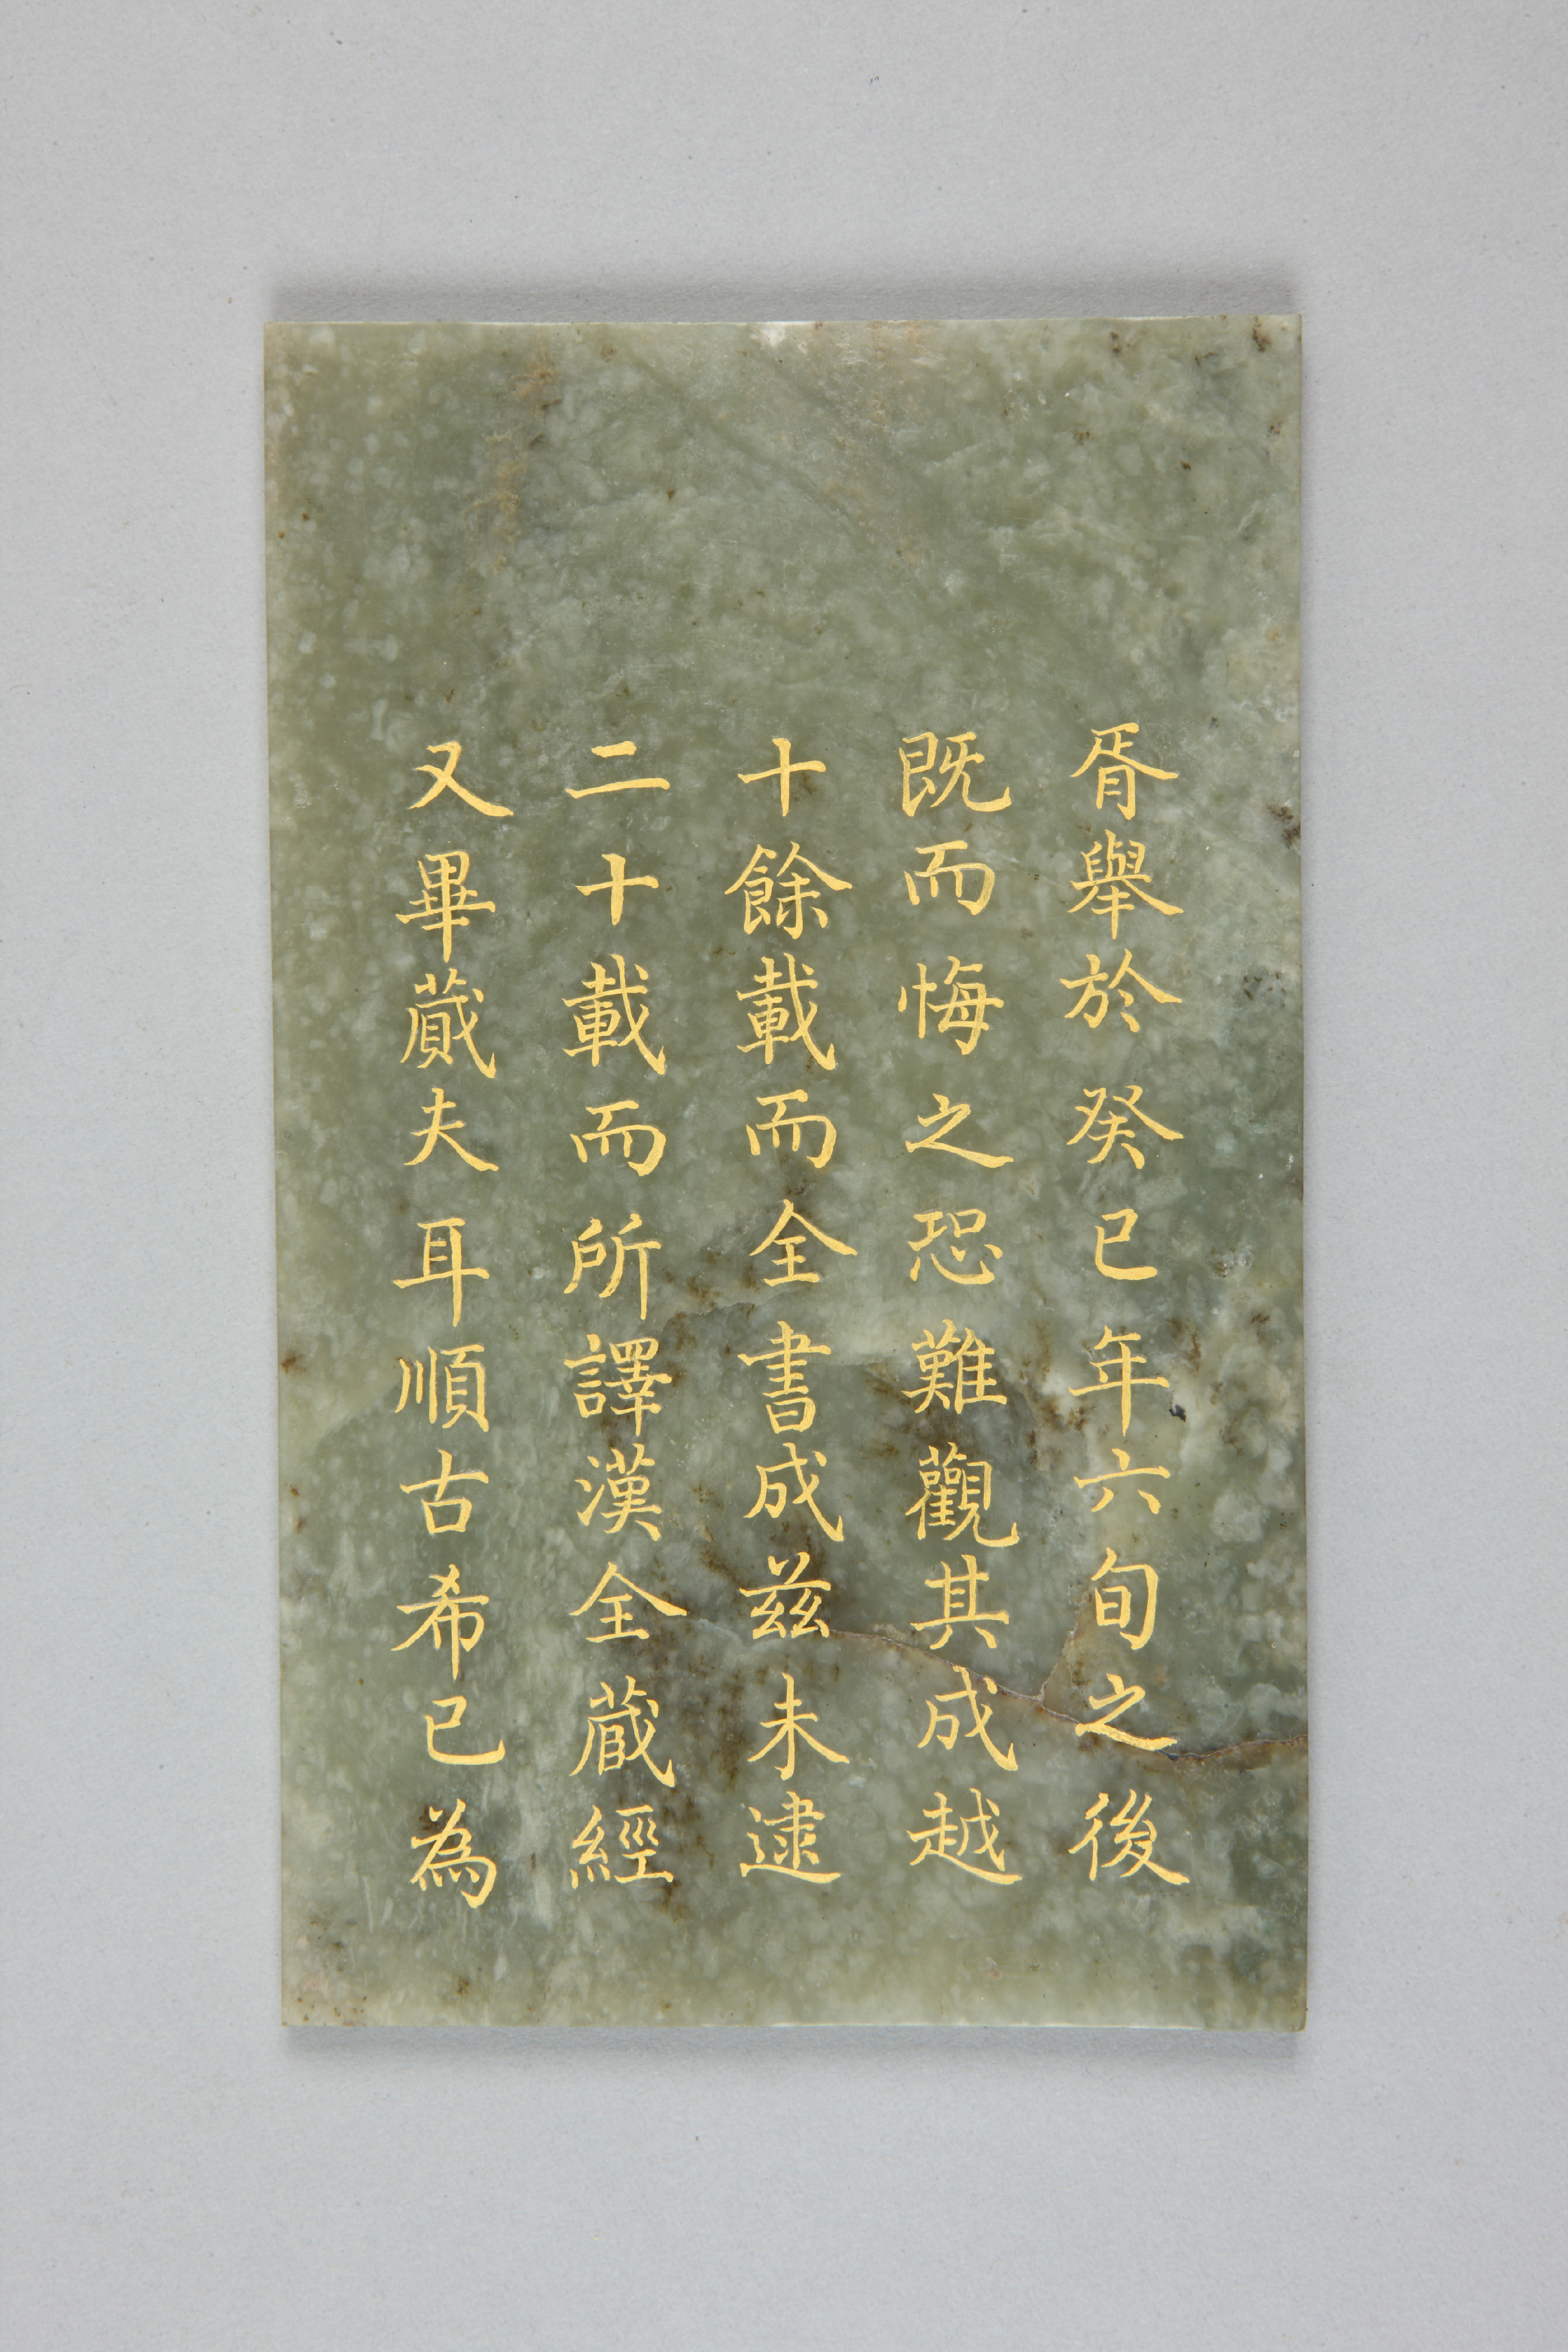 胥舉於癸巳年六旬之後
既而悔之恐難觀其成越
十餘載而全書成兹未逮
二十載而所譯漢全蔵經
又畢蕆夫耳順古希已為